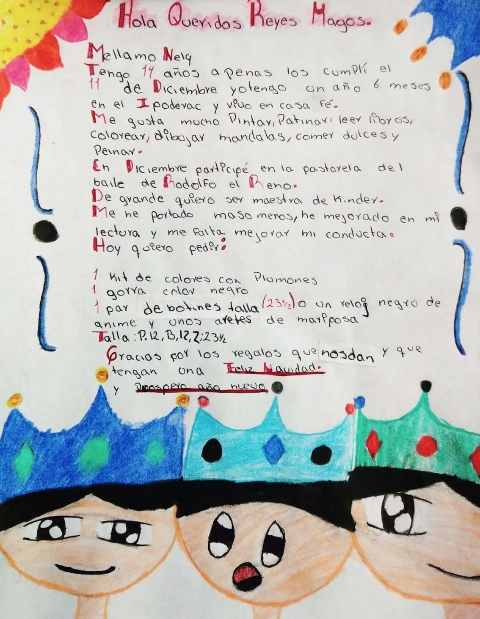 Hola Queridos Reyes Magos.
Mellamo Nely
Tengo 14 años apenas los cumplí el
11 de Diciembre yotengo un año 6 meses
en el Ipoderac y vivo en casa Fé.
Me gusta mucho Pintar, Patinar, leer libros,
colorear, dibojar mandalas, comer dulces y
Peinar.
En Diciembre participé en la pastorela del
baile de Rodolfo el Reno.
De grande quiero ser maestra de Kinder.
Me he portado maso menos, he mejorado en mi
lectura y me falta mejorar mi conducta.
Hoy quiero pedir:
1 Kit de colores con Plumones
1 gorra color negro
1 par de botines talla (23½) o un reloj negro de
anime y unos aretes de mariposa
Talla: P.12, B.12, Z:23½
Gracias por los regalos que nosdan y que
tengan una Feliz Navidad.
y Prospero año nuevo